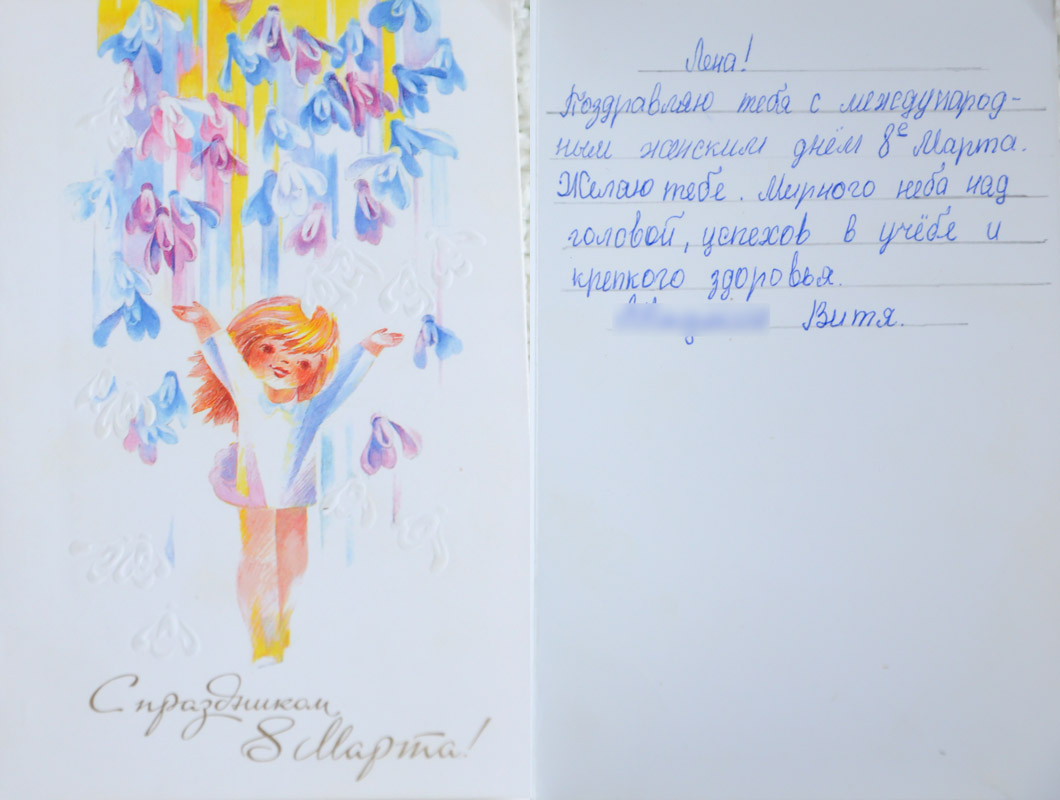 С праздником
8 Марта!
Лена!
Поздравляю тебя с международ-
ным женским днём 8е Марта.
Желаю тебе. Мирного неба над
головой, успехов в учёбе и
крепкого здоровья.
Витя.